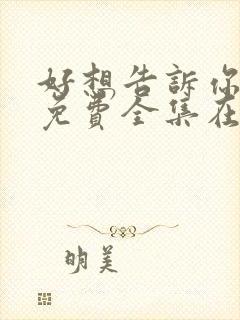 好想告訴你
免費全集在
明美